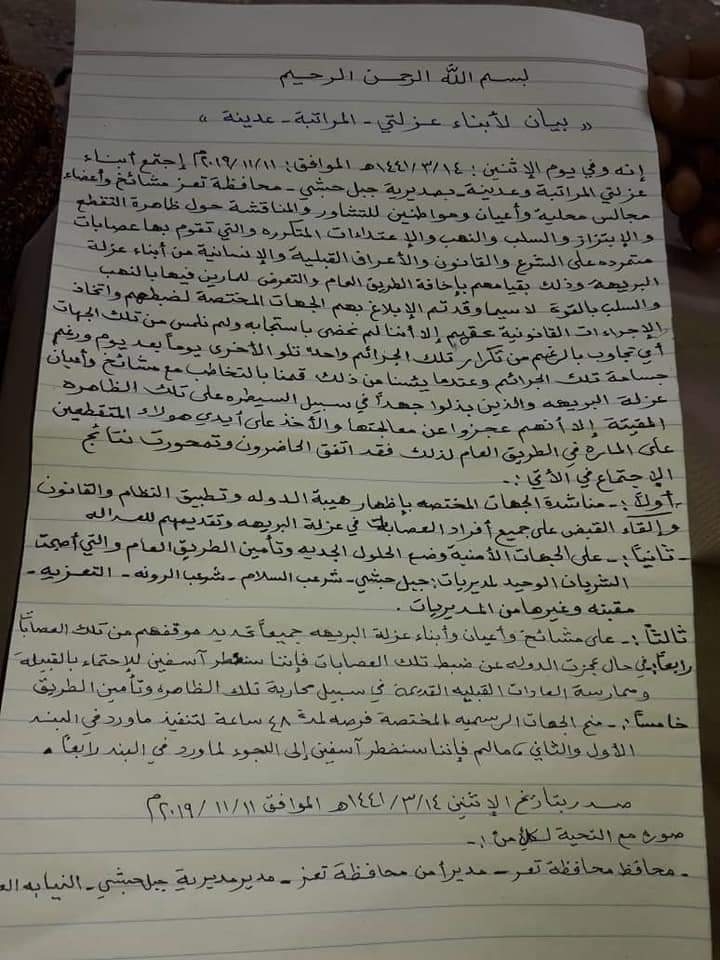 بسم الله الرحمن الرحيم
« بيان لأبناء عزلتي - المراتبة - عدينة »
إنه وفي يوم الإثنين : ١٤٤١/٣/١٤هـ الموافق : ٢٠١٩/١١/١١م إجتمع أبناء
عزلتي المراتبة وعدينة - بمديرية جبل حبشي - محافظة تعز مشائخ وأعضاء
مجالس محلية وأعيان ومواطنين للتشاور والمناقشة حول ظاهرة التقطع
والإبتزاز والسلب والنهب والإعتداءات المتكرره والتي تقوم بها عصابات
متمرده على الشرع والقانون والأعراف القبلية والإنسانية من أبناء عزلة
البريهه وذلك بقيامهم بإخافة الطريق العام والتعرض للمارين فيها بالنهب
والسلب بالقوة لا سيما وقد تم الإبلاغ بهم الجهات المختصة لضبطهم واتخاذ
الإجراءات القانونية عقبهم إلا أننا لم نحضى باستجابه ولم نلمس من تلك الجهات
أي تجاوب بالرغم من تكرار تلك الجرائم واحدة تلو الأخرى يوماً بعد يوم ورغم
جسامة تلك الجرائم وعندما يئسنا من ذلك قمنا بالتخاطب مع مشائخ وأعيان
عزلة البريهه والذين بذلوا جهداً في سبيل السيطره على تلك الظاهره
المقيتة إلا أنهم عجزوا عن معالجتها والأخذ على أيدي هولاء المتقطعين
على المارة في الطريق العام لذلك فقد اتفق الحاضرون وتمحورت نتائج
الإجتماع في الأتي :-
أولاً :- مناشدة الجهات المختصه بإظهار هيبة الدوله وتطبيق النظام والقانون
وإلقاء القبض على جميع أفراد العصابات في عزلة البريهه وتقديمهم للعداله
- ثانياً :- على الجهات الأمنية وضع الحلول الجديه وتأمين الطريق العام والتي أصبحت
الشريان الوحيد لمديريات : جبل حبشي - شرعب السلام - شرعب الرونه - التعزيه -
مقبنه وغيرها من المديريات .
ثالثاً :- على مشائخ وأعيان وأبناء عزلة البريهه جميعاً تحديد موقفهم من تلك العصابات
رابعاً :- في حال عجزت الدوله عن ضبط تلك العصابات فإننا سنضطر آسفين للإحتماء بالقبيلة
وممارسة العادات القبليه القديمة في سبيل محاربة تلك الظاهره وتأمين الطريق
خامساً :- منح الجهات الرسميه المختصة فرصه لمدة ٤٨ ساعة لتنفيذ ماورد في البند
الأول والثاني ، مالم فإننا سنضطر آسفين إلى اللجوء لما ورد في البند رابعاً .
صدر بتاريخ الإثنين ١٤٤١/٣/١٤هـ الموافق ٢٠١٩/١١/١١م
صوره مع التحية لكلٍ من :-
- محافظ محافظة تعز - مدير أمن محافظة تعز - مدير مديرية جبل حبشي - النيابه